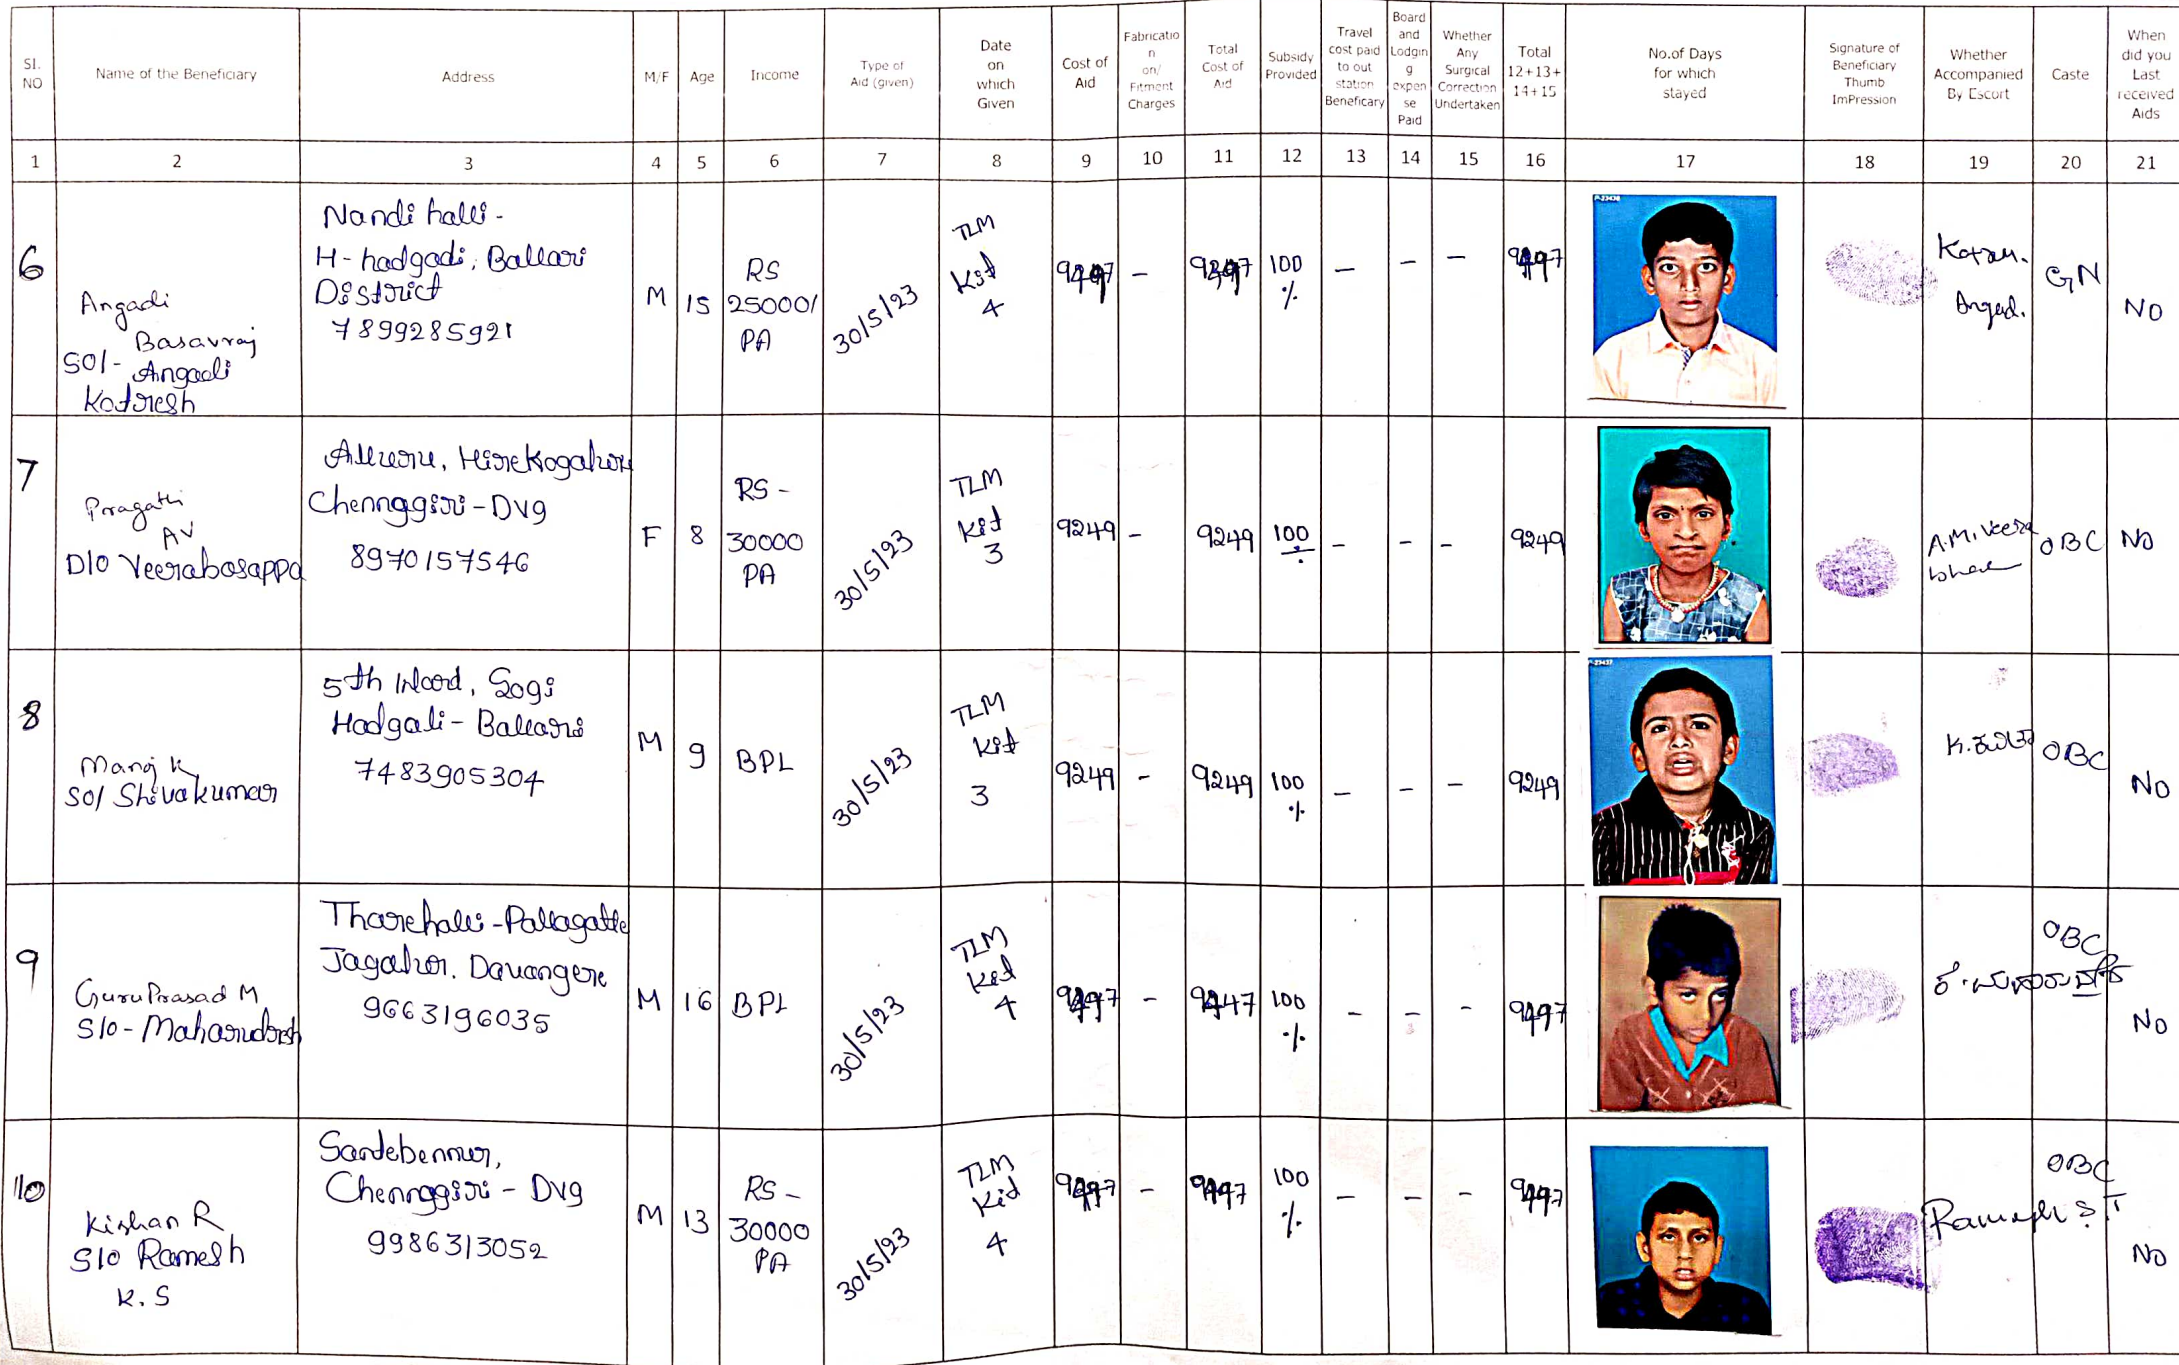 Sl. NO
Name of the Beneficiary
Address
M/F
Age
Income
Type of Aid (given)
Date on which Given
Cost of Aid
Fabricatio n on/ Fitment Charges
Total Cost of Aid
Subsidy Provided
Travel cost paid to out station Beneficary
Board and Lodgin g expen se Paid
Whether Any Surgical Correction Undertaken
Total 12+13+ 14+15
No.of Days for which stayed
Signature of Beneficiary Thumb ImPression
Whether Accompanied By Escort
Caste
When did you Last received Aids
1 2 3 4 5 6 7 8 9 10 11 12 13 14 15 16 17 18 19 20 21
6
Angadi
Basavraj
SO/- Angadi
Kotresh
Nandi halli -
H-hadgadi, Ballari
District
7899285921
M
15
RS
25000/
PA
30/5/23
TLM
Kit
4
-
100
%
-
-
-
GN
NO
7
Pragathi
AV
D/O Veerabasappa
Chennggiri - DVG
8970157546
F
8
RS -
30000
PA
30/5/23
TLM
Kit
3
9249
-
9249
100
-
-
-
9249
A.M. Veera
OBC
NO
8
Manoj K
SO/ Shivakumar
5th Ward, Sogi
Hadgali - Ballari
7483905304
M
9
BPL
30/5/23
TLM
Kit
3
9249
-
9249
100
%
-
-
-
9249
OBC
NO
9
GuruPrasad M
S/O - Maharudresh
Tharehalli - Pallagatte
Jagalur. Davangere
9663196035
M
16
BPL
30/5/23
TLM
Kit
4
-
100
%
-
-
-
OBC
NO
10
Kishan R
S/O Ramesh
K.S
Santebennur,
Chennggiri - DVG
9986313052
M
13
RS -
30000
PA
30/5/23
TLM
Kit
4
-
100
%
-
-
-
OBC
NO